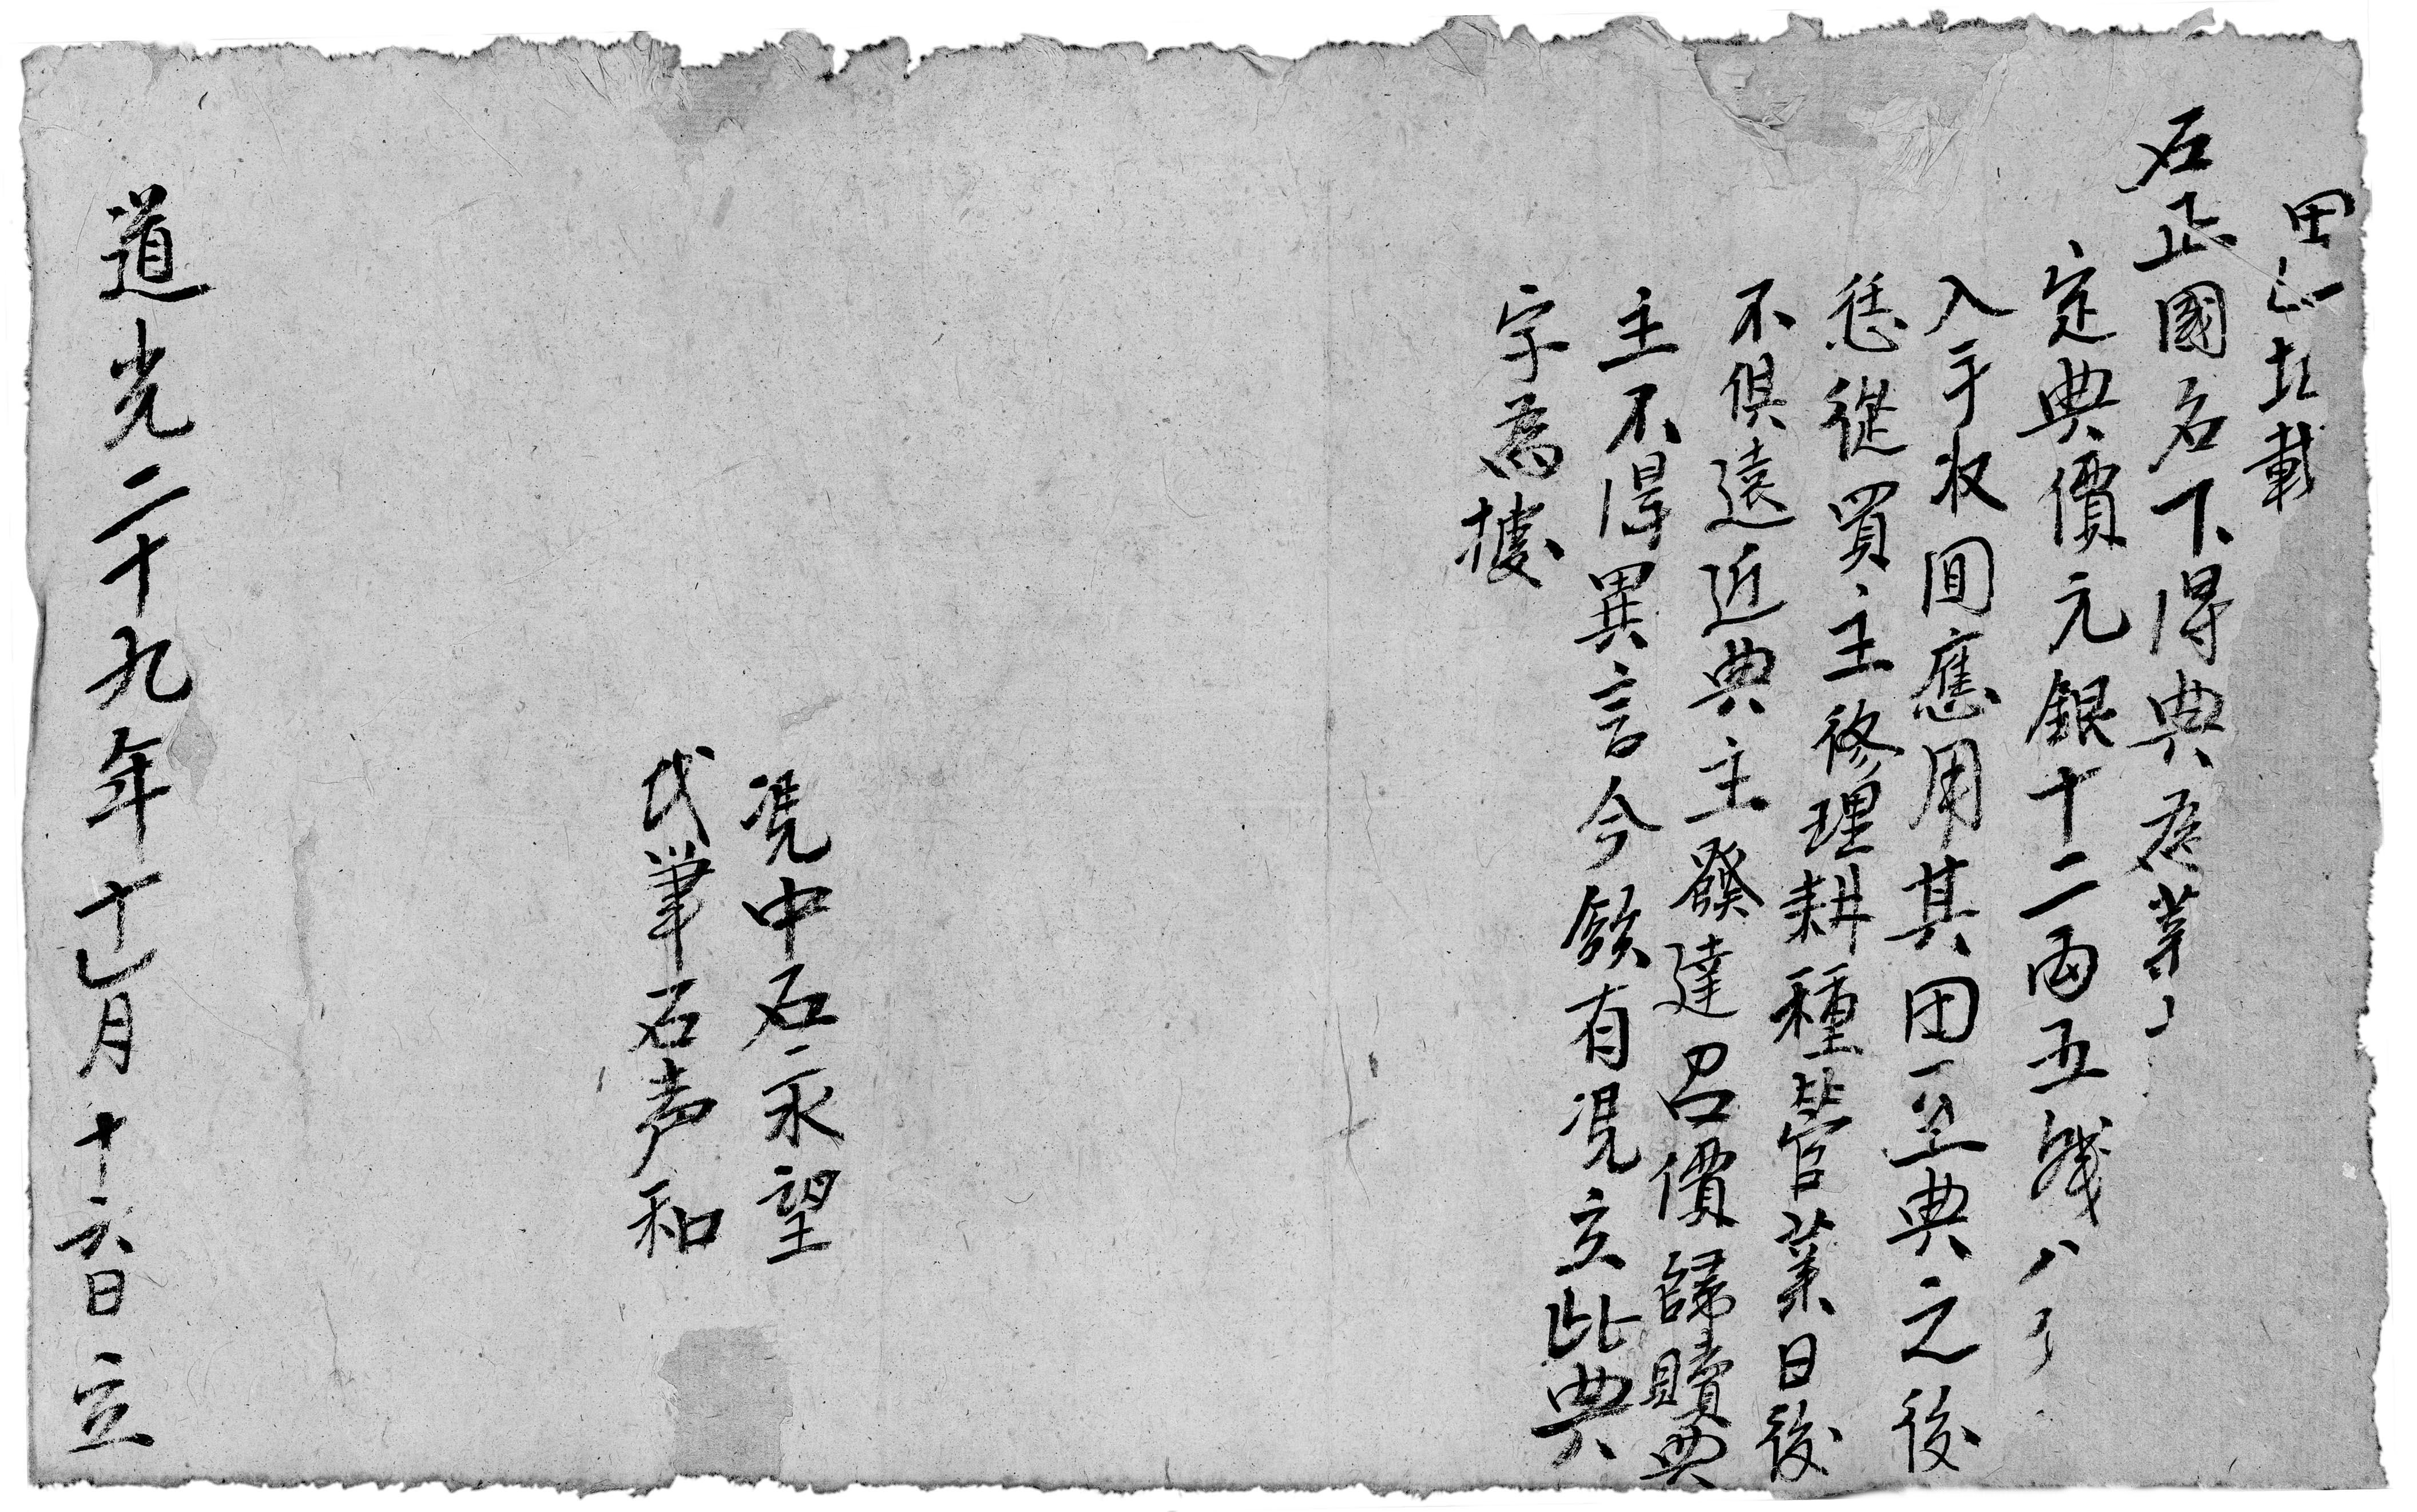 田 坵載
石正國名下得典為業
定典價元銀十二両五錢八
入手收囬應用其田一亗典之後
恁從買主修理耕種管業日後
不俱遠近典主發達呂價歸贖典
主不得異言今欲有凴立此典
字為據
凴中石永望
代筆石声和
道光二十九年十乙月十六日立